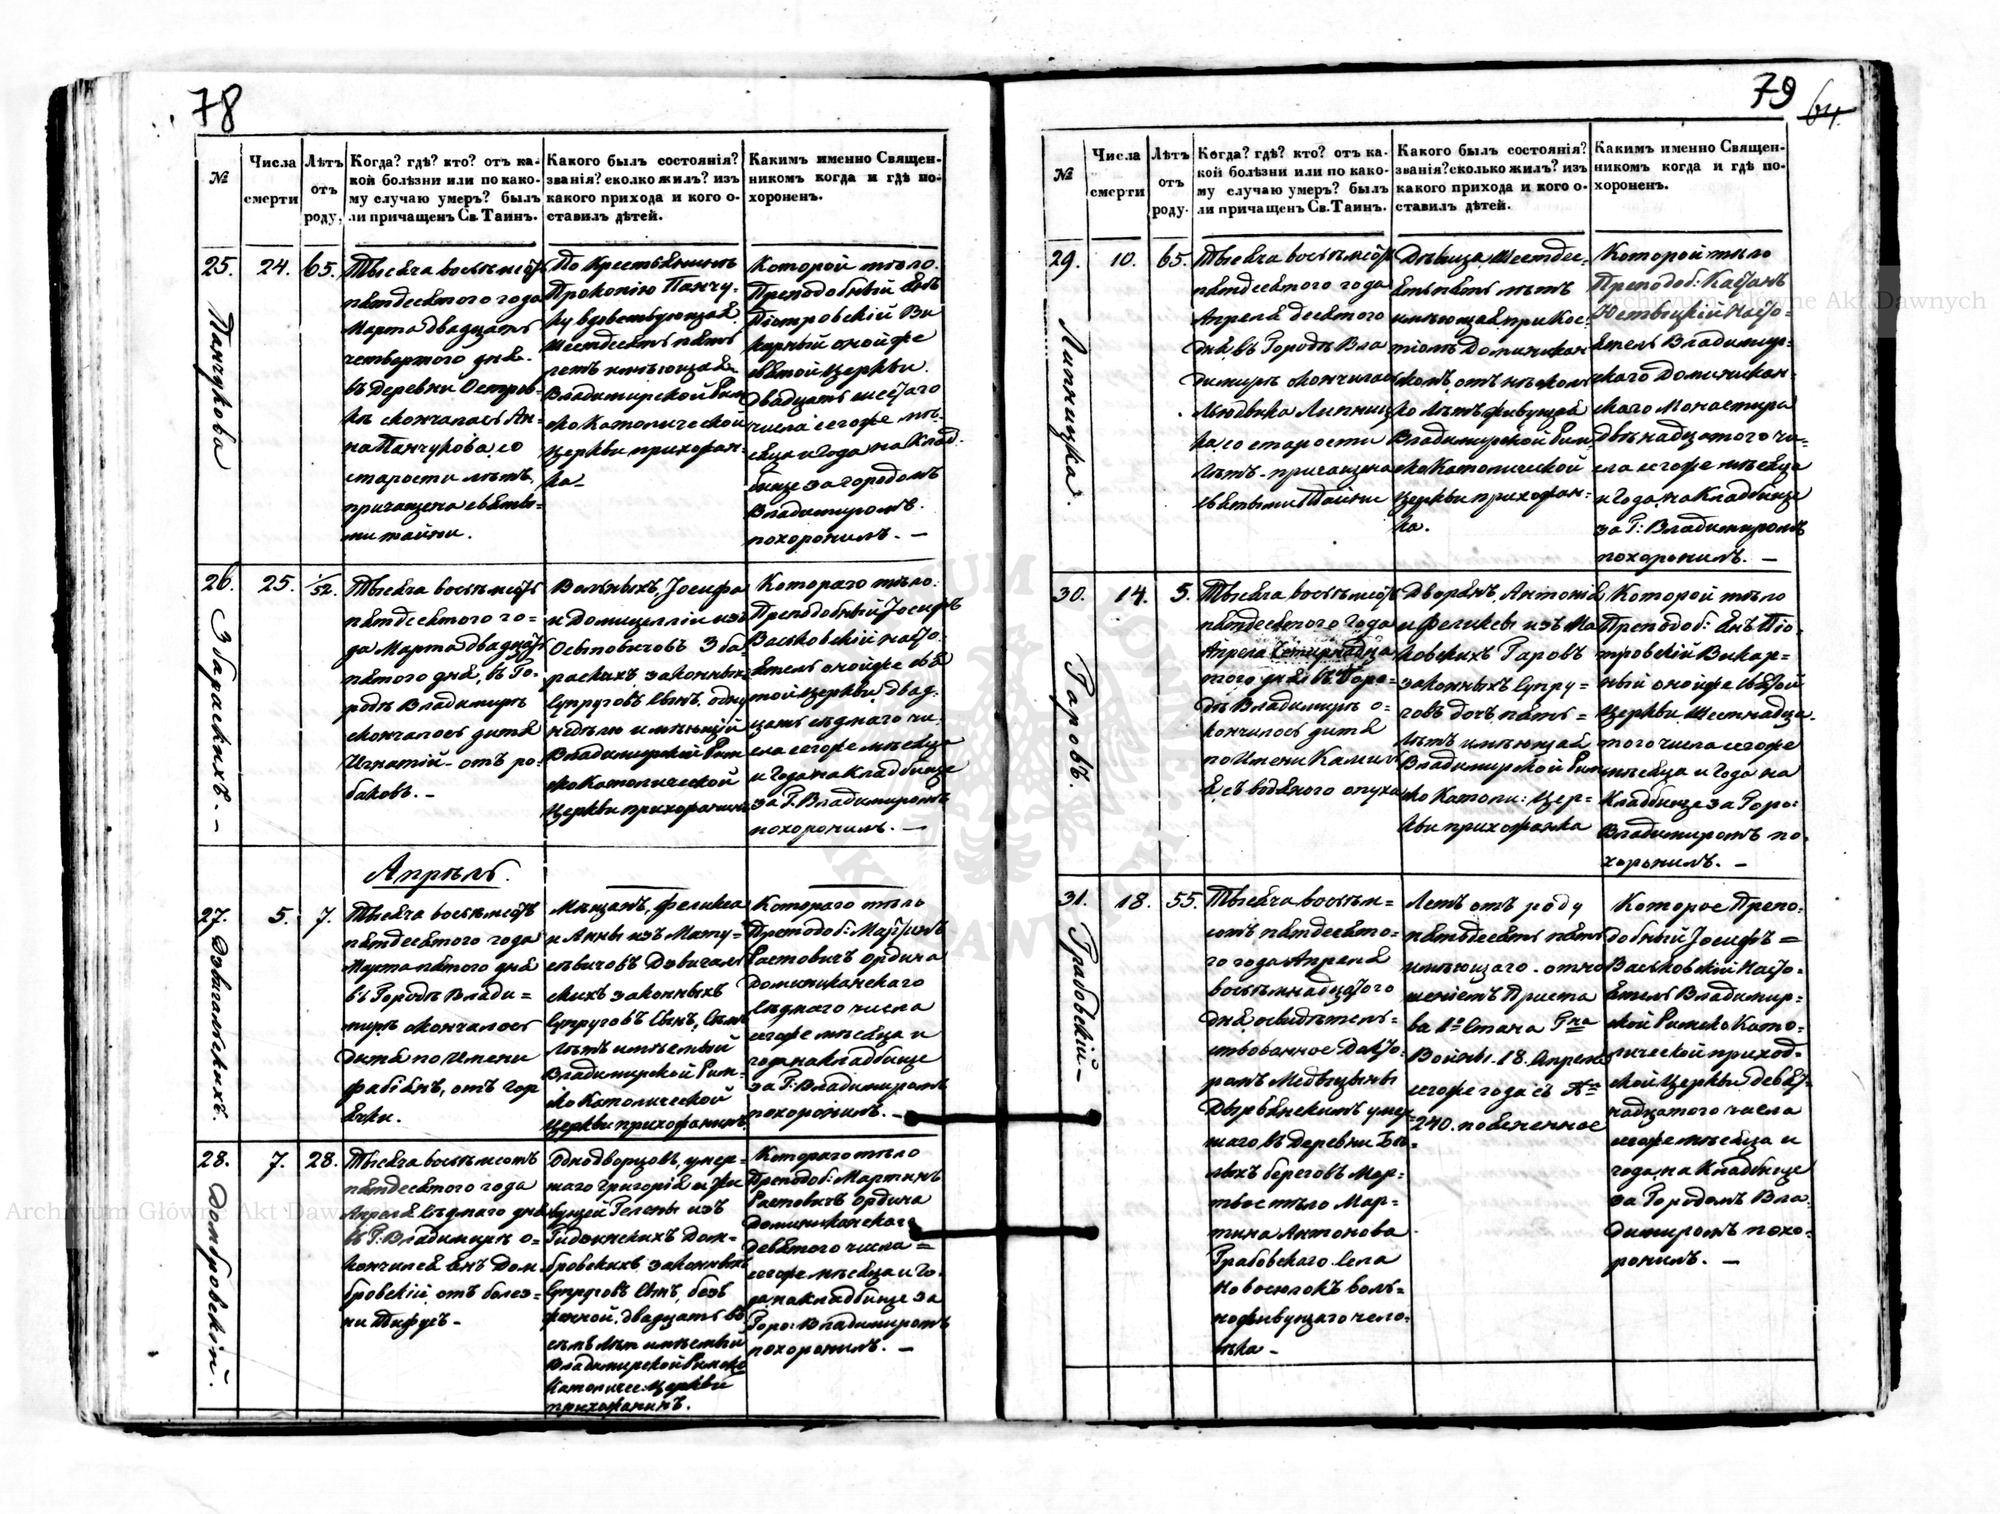 78
№
Числа смерти
Лѣтъ отъ роду.
Когда? гдѣ? кто? отъ ка-
кой болѣзни или по како-
му случаю умеръ? былъ
ли причащенъ Св. Таинъ.
Какого былъ состоянія?
званія? сколко жилъ? изъ
какого прихода и кого о-
ставилъ дѣтей.
Какимъ именно Священ-
никомъ когда и гдѣ по-
хороненъ.
25.
Панчукова
24.
65.
Тысяча восѣмсотъ
пятдесятого года
Марта двадцать
четвертого дня
въ деревни Остров-
скончалась Ан-
на Панчукова со
старости лѣтъ
причащена святы-
ми тайни.
По Крестьянинѣ
Прокопію Панчу-
ку вдовствующая
шестдесятъ пять
летъ имѣющая
Владимирской Рим
ско Католической
Церкви прихожан-
ка
Которой тѣло
Преподобный Янъ
Піотровскій Ви
карный онойже
святой Церкви
двадцать шестаго
числа сегоже мѣ-
сяца и года на клад-
бище за городомъ
Владимиромъ
похоронилъ. —
26.
Збараскихъ. —
25.
1/52.
Тысяча восѣмсотъ
пятдесятого го=
да Марта двадцать
пятого дня, въ Го-
родѣ Владимирѣ
скончалось дитя
Игнатій - отъ ро-
баковъ. —
Вольныхъ, Іосифа
и Домицеллии изъ
Осѣповичовъ Зба-
раскихъ законныхъ
Супруговъ сынъ, одну
недѣлю имѣющій
Владимирской Рим
ско Католической
Церкви прихожанинъ
Котораго тѣло
Преподобный Іосифъ
Васьковскій насто-
ятель онойже свя
той церкви, двад-
цать седмаго чи-
сла сегоже мѣсяца
и года на кладбище
за Г. Владимиромъ
похоронилъ. —
Апрѣль.
27.
Дзвигальскихъ.
5.
7.
Тысяча восѣмсотъ
пятдесятого года
Марта пятого дня
въ Городѣ Влади=
мирѣ скончалось
дитя по имени
Фабіянъ, отъ гор
ячки.
Мѣщанъ, Феликса
и Анны изъ Мату=
севичовъ Дзвигаль
скихъ законныхъ
Супруговъ сынъ, семъ
лѣтъ имѣемый
Владимирской Рим-
ско Католической
Церкви прихожанинъ.
Котораго тѣло
Преподоб: Мартинъ
Растовичъ ордина
Доминиканскаго
седмаго числа
сегоже мѣсяца и
года на кладбище
за Г: Владимиромъ
похоронилъ. —
28.
Домбровскій.
7.
28.
Тысяча восѣмсотъ
пятдесятого года
Апреля седмаго дня
въ Г: Владимирѣ о=
кончился Янъ Дом-
бровскій, отъ болез=
ни тифусъ —
Однодворцовъ, умер=
шаго Григорія и жи
вущей Гелены изъ
Дом=
бровскихъ законныхъ
Супруговъ сынъ, без
женной, двадцать во
семъ лѣт имѣемый
Владимирской Римско
Католичес: Церкви
прихожанинъ.
Котораго тѣло
Преподоб: Мартинъ
Растовичъ ордина
Доминиканскаго
девятого числа =
сегоже мѣсяца и го-
да на кладбище за
Горо: Владимиромъ
похоронилъ. —
79
64.
№
Числа смерти
Лѣтъ отъ роду.
Когда? гдѣ? кто? отъ ка-
кой болѣзни или по како-
му случаю умеръ? былъ
ли причащенъ Св. Таинъ.
Какого былъ состоянія?
званія? сколько жилъ? изъ
какого прихода и кого о-
ставилъ дѣтей.
Какимъ именно Священ-
никомъ когда и гдѣ по-
хороненъ.
29.
Липницка.
10.
65.
Тысяча восѣмсотъ
пятдесятого года
Апреля десятого
дня въ Городѣ Вла
димирѣ скончилась
Людвика Липниц
ка со старости
лѣтъ - причащена
святыми Тайни
Дѣвица, Шестдес=
ятъ пять лѣтъ
имѣющая при Кос=
тіолѣ Доминикан
скомъ, отъ нѣсколь
ко лѣтъ живущая
Владимирской Рим
ско Католической
Церкви прихожан=
ка.
Которой тѣло
Преподоб: Каетанъ
насто=
ятель Владимир=
скаго Доминикан-
скаго Монастира
двѣнадцатого чи=
сла сегоже мѣсяца
и года, на кладбище
за Г: Владимиромъ
похоронилъ. —
30.
Гаровъ.
14.
5.
Тысяча восѣмсотъ
пятдесятого года
Апреля четирнадца
того дня въ Горо=
дѣ Владимирѣ о=
кончилось дитя
по имени Камил
я, съ водяного опуха
Дворянъ, Антонія
и Фелиціи изъ
Гаровъ
законныхъ Супру=
говъ дочъ пять=
лѣтъ имѣющая
Владимирской Рим
ско Католи: Цер=
кви прихожанка
Которой тѣло
Преподоб: Янъ Піо-
тровскій Викар=
ный онойже святой
церкви Шестнадца-
того числа сегоже
мѣсяца и года на
кладбище за Горо:
Владимиромъ по-
хоронилъ. —
31.
Грабовскій. —
18.
55.
Тысяча восѣм=
сотъ пятдесято=
го года Апреля
восѣмнадцатого
дня освидѣтель=
ствованное Докто-
ромъ Медыцыны
умер
шаго въ деревни Бѣ=
лыхъ береговъ Мер=
твое тѣло Мар=
тина Антонова
Грабовскаго села
Новоселокъ воль=
ноживущаго чело-
вѣка —
Летъ отъ роду
пятьдесятъ пять
имѣющаго, отно
шеніемъ Приста
ва 1го Стана Гна
Войны. 18. Апреля
сегоже года съ №
240. посяченное
Которое Препо-
добный Іосифъ =
Васьковскій насто-
ятель Владимир=
ской Римско Като-
лической приход=
ской Церкви девят-
надцатого числа
сегоже мѣсяца и
года, на кладбище
за Городомъ Вла
димиромъ похо-
ронилъ. —
Archiwum Główne Akt Dawnych
Archiwum Główne Akt Dawnych